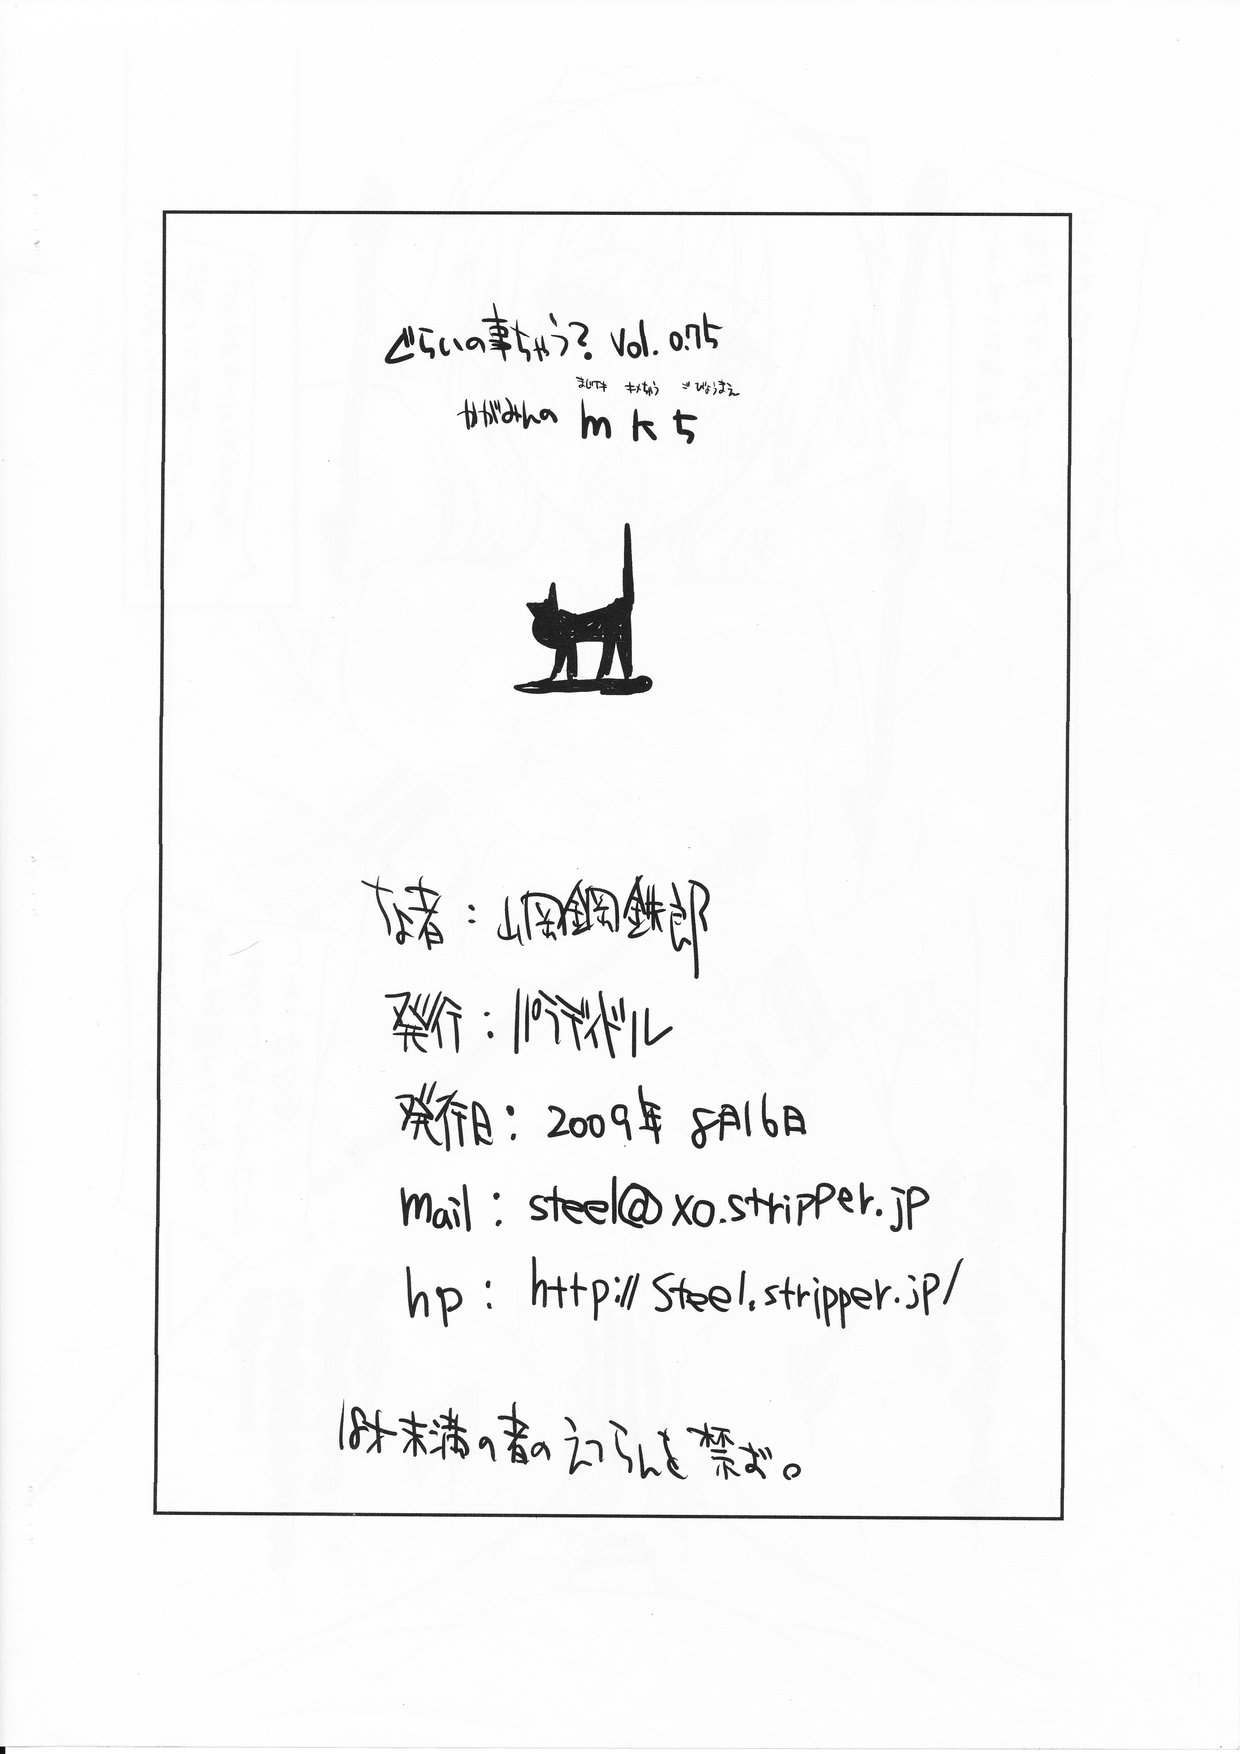 ぐらいの事ちゃう? Vol. 0.75
まじでキ キメちゅう ごびょうまえ
かがみんの mk5
なよ者:山岡鋼鉄郎
発行:パラディドル
発行日:2009年8月16日
mail:steel@xo.stripper.jp
hp:http://steel.stripper.jp/
18才未満の者のえつらんを禁ず。